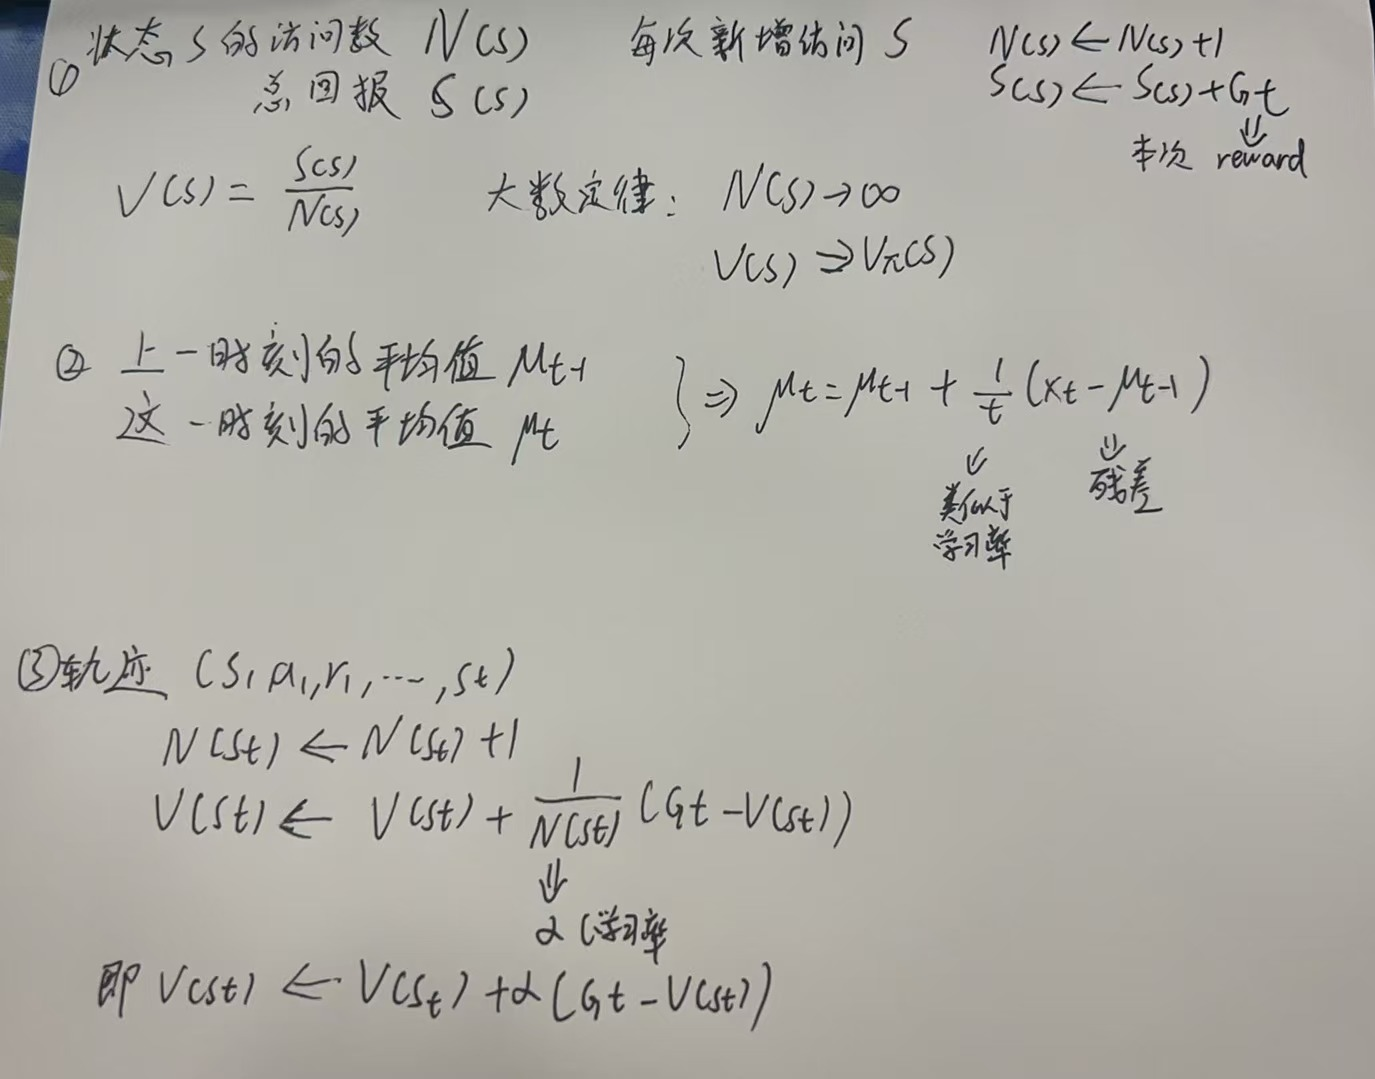 ① 状态 S 的访问数 N(s) 每次新增访问 S N(s) ← N(s)+1
总回报 S(s) S(s) ← S(s)+Gt
⇓
本次 reward
V(s) = S(s)/N(s) 大数定律: N(s)→∞
V(s) ⇒ Vπ(s)
② 上一时刻的平均值 μt-1
这一时刻的平均值 μt } ⇒ μt = μt-1 + 1/t (xt - μt-1)
⇓ ⇓
类似于 残差
学习率
③ 轨迹 (s1, a1, r1, ..., st)
N(st) ← N(st) +1
V(st) ← V(st) + 1/N(st) (Gt - V(st))
⇓
α (学习率
即 V(st) ← V(st) + α(Gt - V(st))